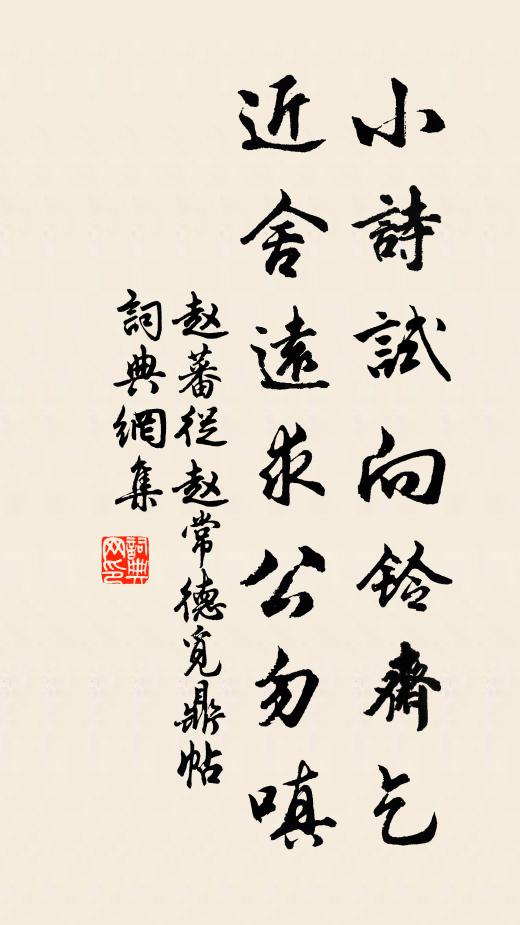 小詩試向鈴齋乞
近舍遠求公勿嗔
赵蕃從赵常德覓鼎帖
詞典網集
詞典网印